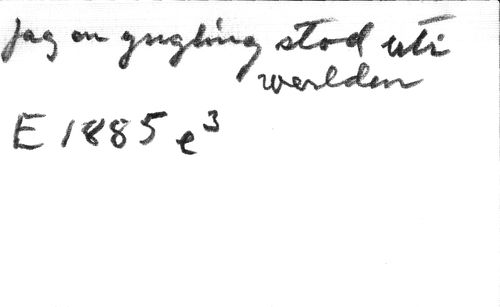 Jag en yngling stod uti
werlden
E 1885 e³